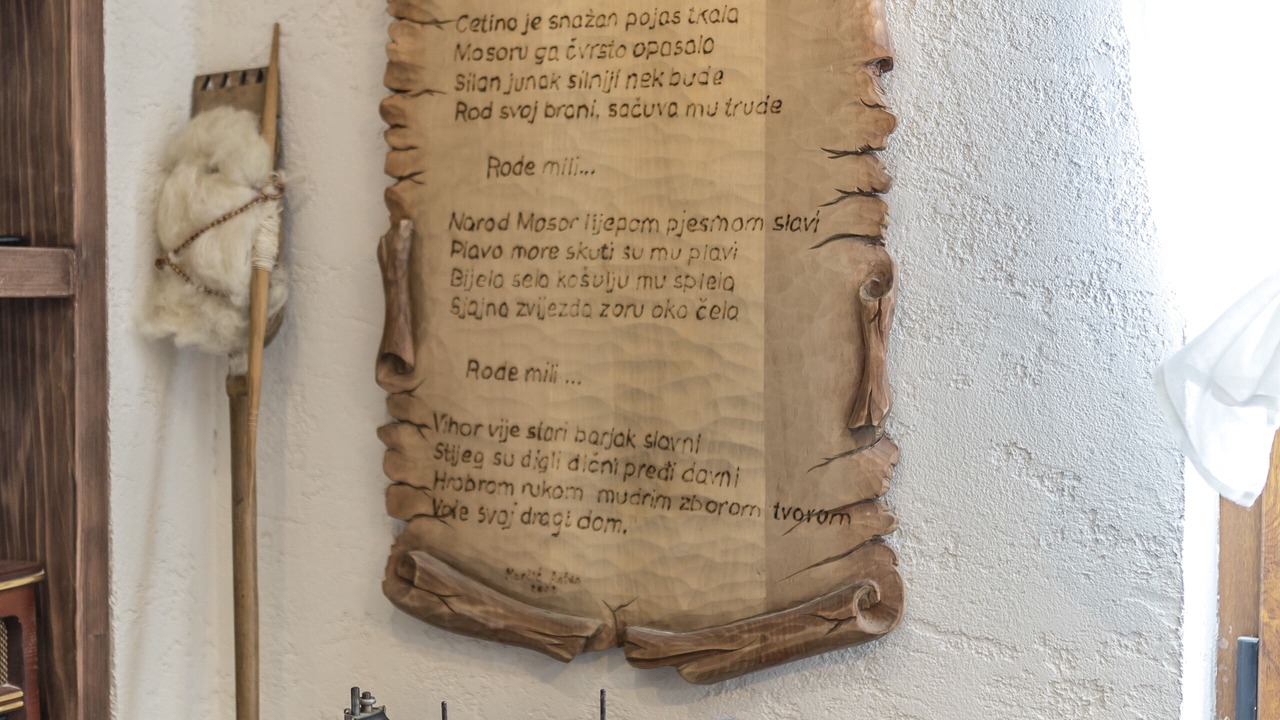 Cetina je snažan pojas tkala
Mosoru ga čvrsto opasala
Silan junak silniji nek bude
Rod svoj brani, sačuva mu trude
Rode mili...
Narod Mosor lijepom pjesmom slavi
Plavo more skuti su mu plavi
Bijela sela košulju mu splela
Sjajna zvijezda zoru oko čela
Rode mili ...
Vihor vije stari barjak slavni
Stijeg su digli dični pređi davni
Hrabrom rukom mudrim zborom tvorom
Vole svoj dragi dom.